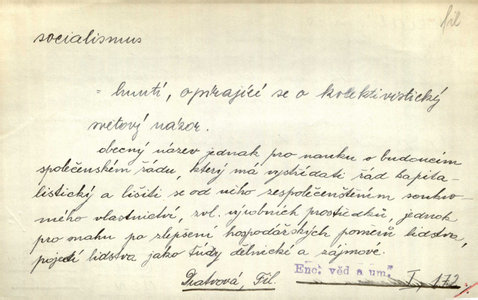 fil
socialismus
= hnutí, opírající se o kolektivistický
světový názor.
obecný název jednak pro nauku o budoucím
společenském řádu, který má vystřídati řád kapita-
listický a lišiti se od něho zespolečenštěním soukro-
mého vlastnictví, zvl. výrobních prostředků, jednak
pro snahu po zlepšení hospodářských poměrů lidstva,
pojetí lidstva jako třídy dělnické a zájmové.
Enc. věd a um.
I, 172.